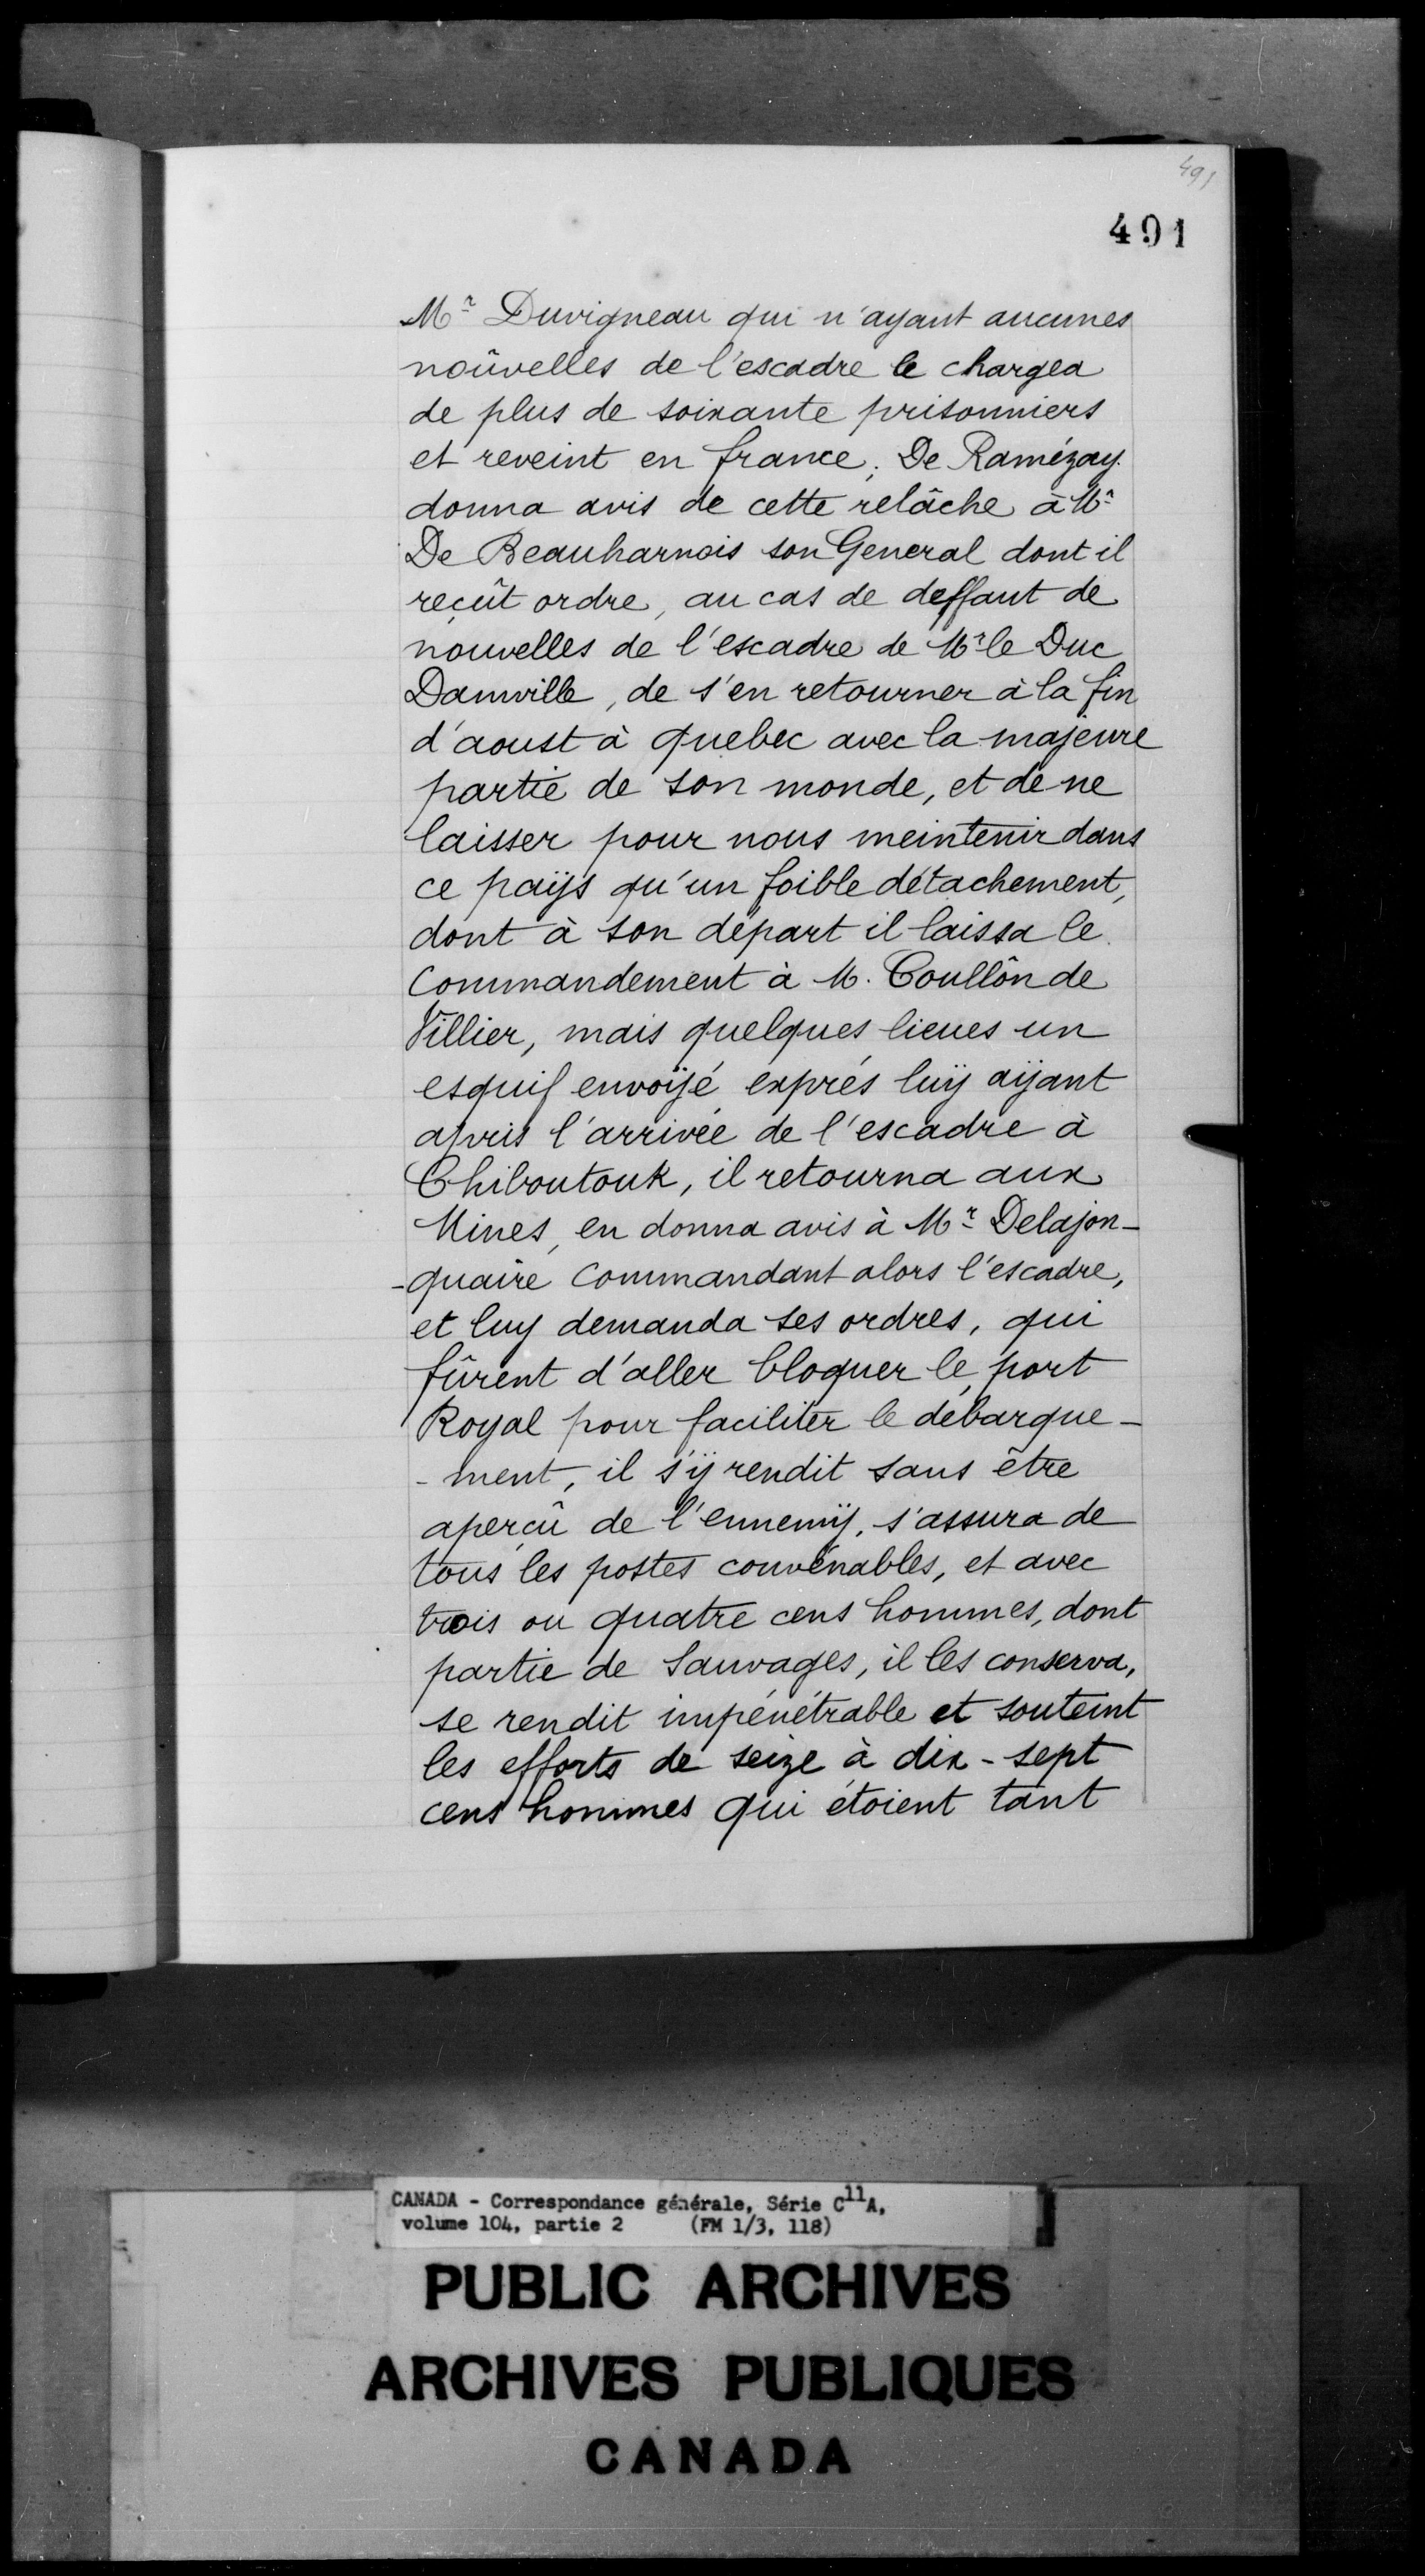 491
491
Mr Duvigneau qui n'ayant aucunes
noûvelles de l'escadre le chargea
de plus de soixante prisonniers
et reveint en france; De Ramézay
donna avis de cette relâche à Mr
De Beauharnois son General dont il
reçût ordre, au cas de deffaut de
nouvelles de l'escadre de Mr le Duc
Danville, de s'en retourner à la fin
d'aoust à quebec avec la majeure
partie de son monde, et de ne
laisser pour nous meintenir dans
ce païjs qu'un foible détachement,
dont à son départ il laissa le
Commandement à M. Coullôn de
Villier, mais quelques lieues un
esquif envoijé exprés luij aijant
apris l'arrivée de l'escadre à
Chiboutouk, il retourna aux
Mines, en donna avis à Mr Delajon-
-quaire Commandant alors l'escadre,
et luy demanda ses ordres, qui
fûrent d'aller bloquer le port
Royal pour faciliter le débarque-
-ment, il s'ij rendit sans être
aperçû de l'ennemij, s'assura de
tous les postes convénables, et avec
trois ou quatre cens hommes, dont
partie de Sauvages, il les conserva,
se rendit impénétrable et souteint
les efforts de seize à dix-sept
cens hommes qui étoient tant
CANADA - Correspondance générale, Série C11A,
volume 104, partie 2 (FM 1/3, 118)
PUBLIC ARCHIVES
ARCHIVES PUBLIQUES
CANADA